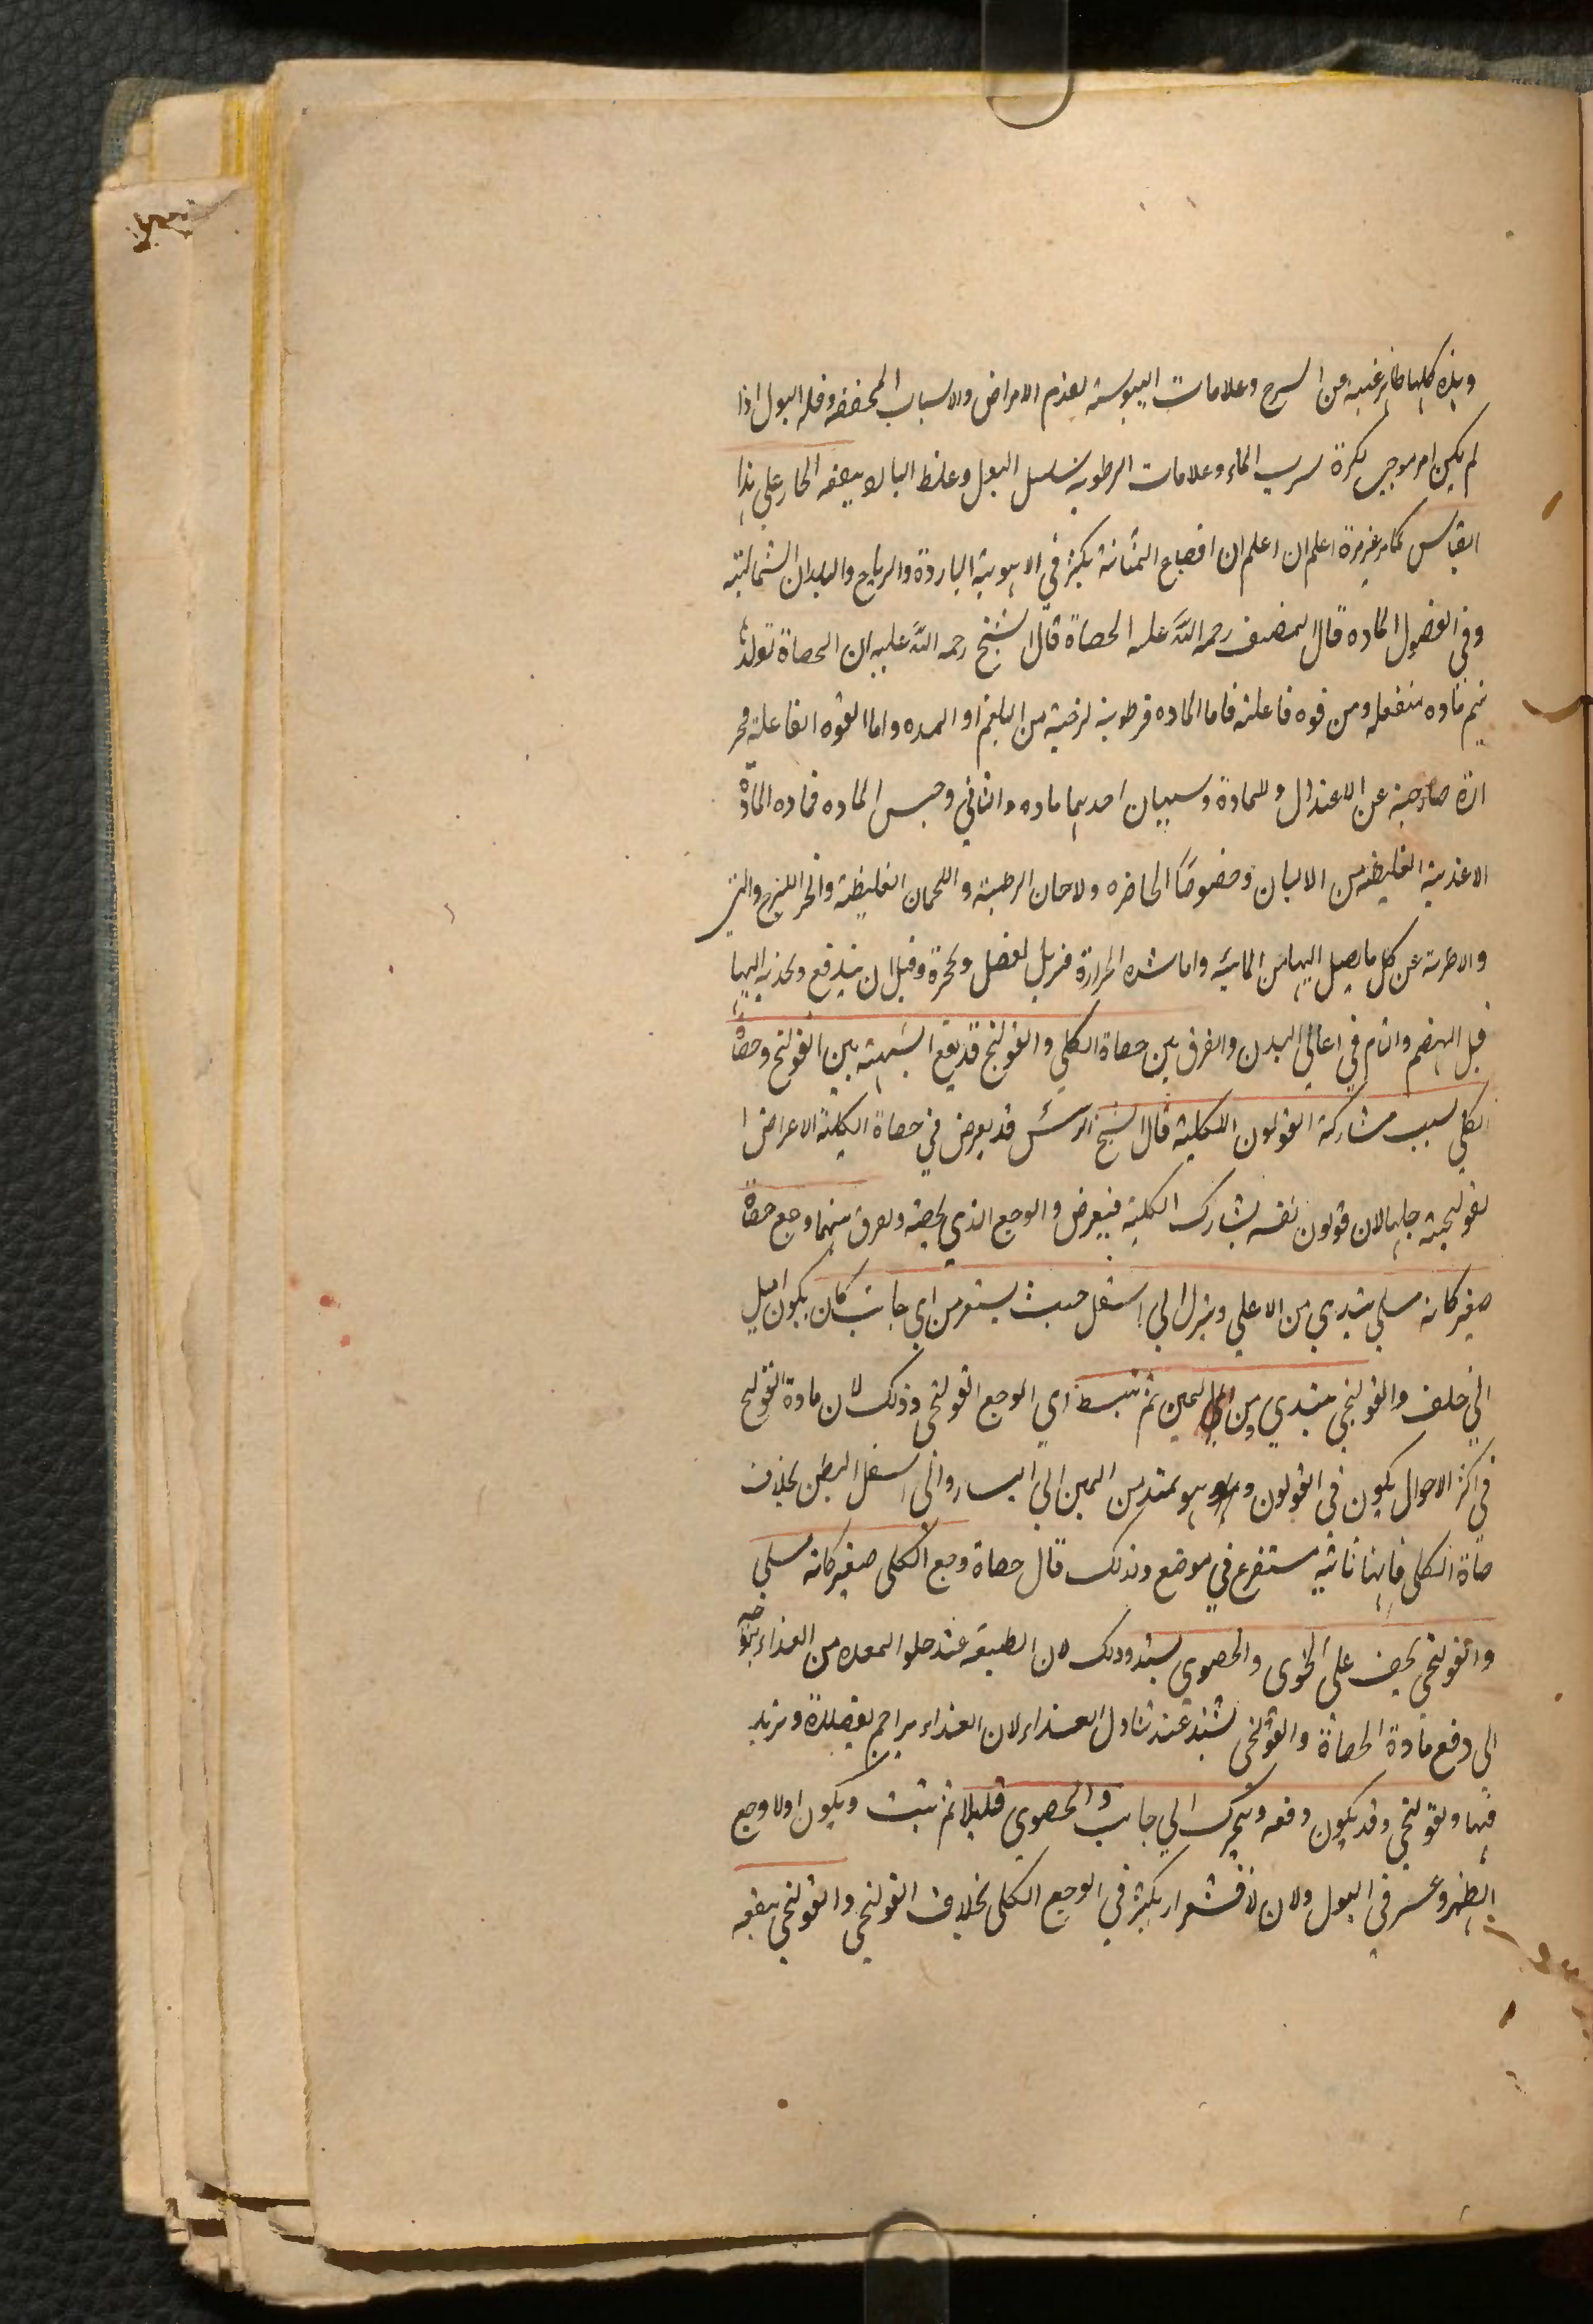 وهذه كلها ظاهر غنيه من الشرح وعلامات اليبوسة تقدم الامراض والاسباب المجففه وقله البول اذا
لم يكن امر موجب لكثرة شرب الماء وعلامات الرطوبة سلسل البول وغلظ البا لا ينفعه الحار على هذا
القياس كما مر غير مرة اعلم ان اعلم ان اوجاع المثانة يكثر في الاهوية الباردة والرياح والبلدان الشمالية
وفي الفصول الماده قال المصنف رحمه الله عله الحصاة قال الشيخ رحمه الله عليه ان الحصاة تولد
يتم ماده منفعله ومن قوه فاعلته فاما الماده فرطوبة لزجية من البلغم او المده واما القوه الفاعلة فحر
ارة خارجية عن الاعتدال وللمادة وسببان احديهما ماده والثاني وحبس الماده فماده المادة
الاغذية الغليظه من الالبان وخصوصًا الخاثره ولاجان الرطبة واللحمان الغليظة والخبز اللزج والتي
والاطرية عن كل ما يصل اليها من المائية واما شده الحرارة فتزيل لفضل وتحجرة وقبل ان يندفع وتجذبه اليها
قبل الهضم واتام في اعالي البدن والفرق بين حصاة الكلي والقولنج قد يقع الشبهة بين القولنج وحصاة
الكلي بسبب مشاركة القولون الكلية قال الشيخ الرئس قد يعرض في حصاة الكلية الاعراض ا
لقولنجية جلها لان قولون نفسه يشارك الكلية فيعرض والوجع الذي يخصه وفرق بينهما وجع حصاة
صغير كانه مسلي يبتدي من الاعلي وينزل الي اسفل حيث يستقر من اي جانب كان يكون اميل
الي خلف والقولنجي يبتدي من اليمين ثم ينبسط اي الوجع القولنجي وذلك لان مادة القولنج
في اكثر الاحوال يكون في القولون وهو يمتد من اليمين الي اليسار والي اسفل البطن بخلاف
صاة الكلي فانها ناشيه مستفرع في موضع ولذلك قال حصاة وجع الكلي صغير كانه مسلي
والقولنجي يخف على الخوى والحصوى يشتد وذلك لان الطبيعه عند خلو المعده من الغذاء يتوجه
الي دفع مادة الحصاة والقولنجي يشتد عند تناول الغذاء لان الغذاء يزاحم بفضلاة ويزيد
فيها ولقولنجي وقد يكون دفعه ويتحرك الي جانب والحصوي قليلا ثم يثبت ويكون اولا وجع
الظهر وعسر في البول ولان لاقشعرار يكثر في الوجع الكلي بخلاف القولنجي والقولنجي ينفعه